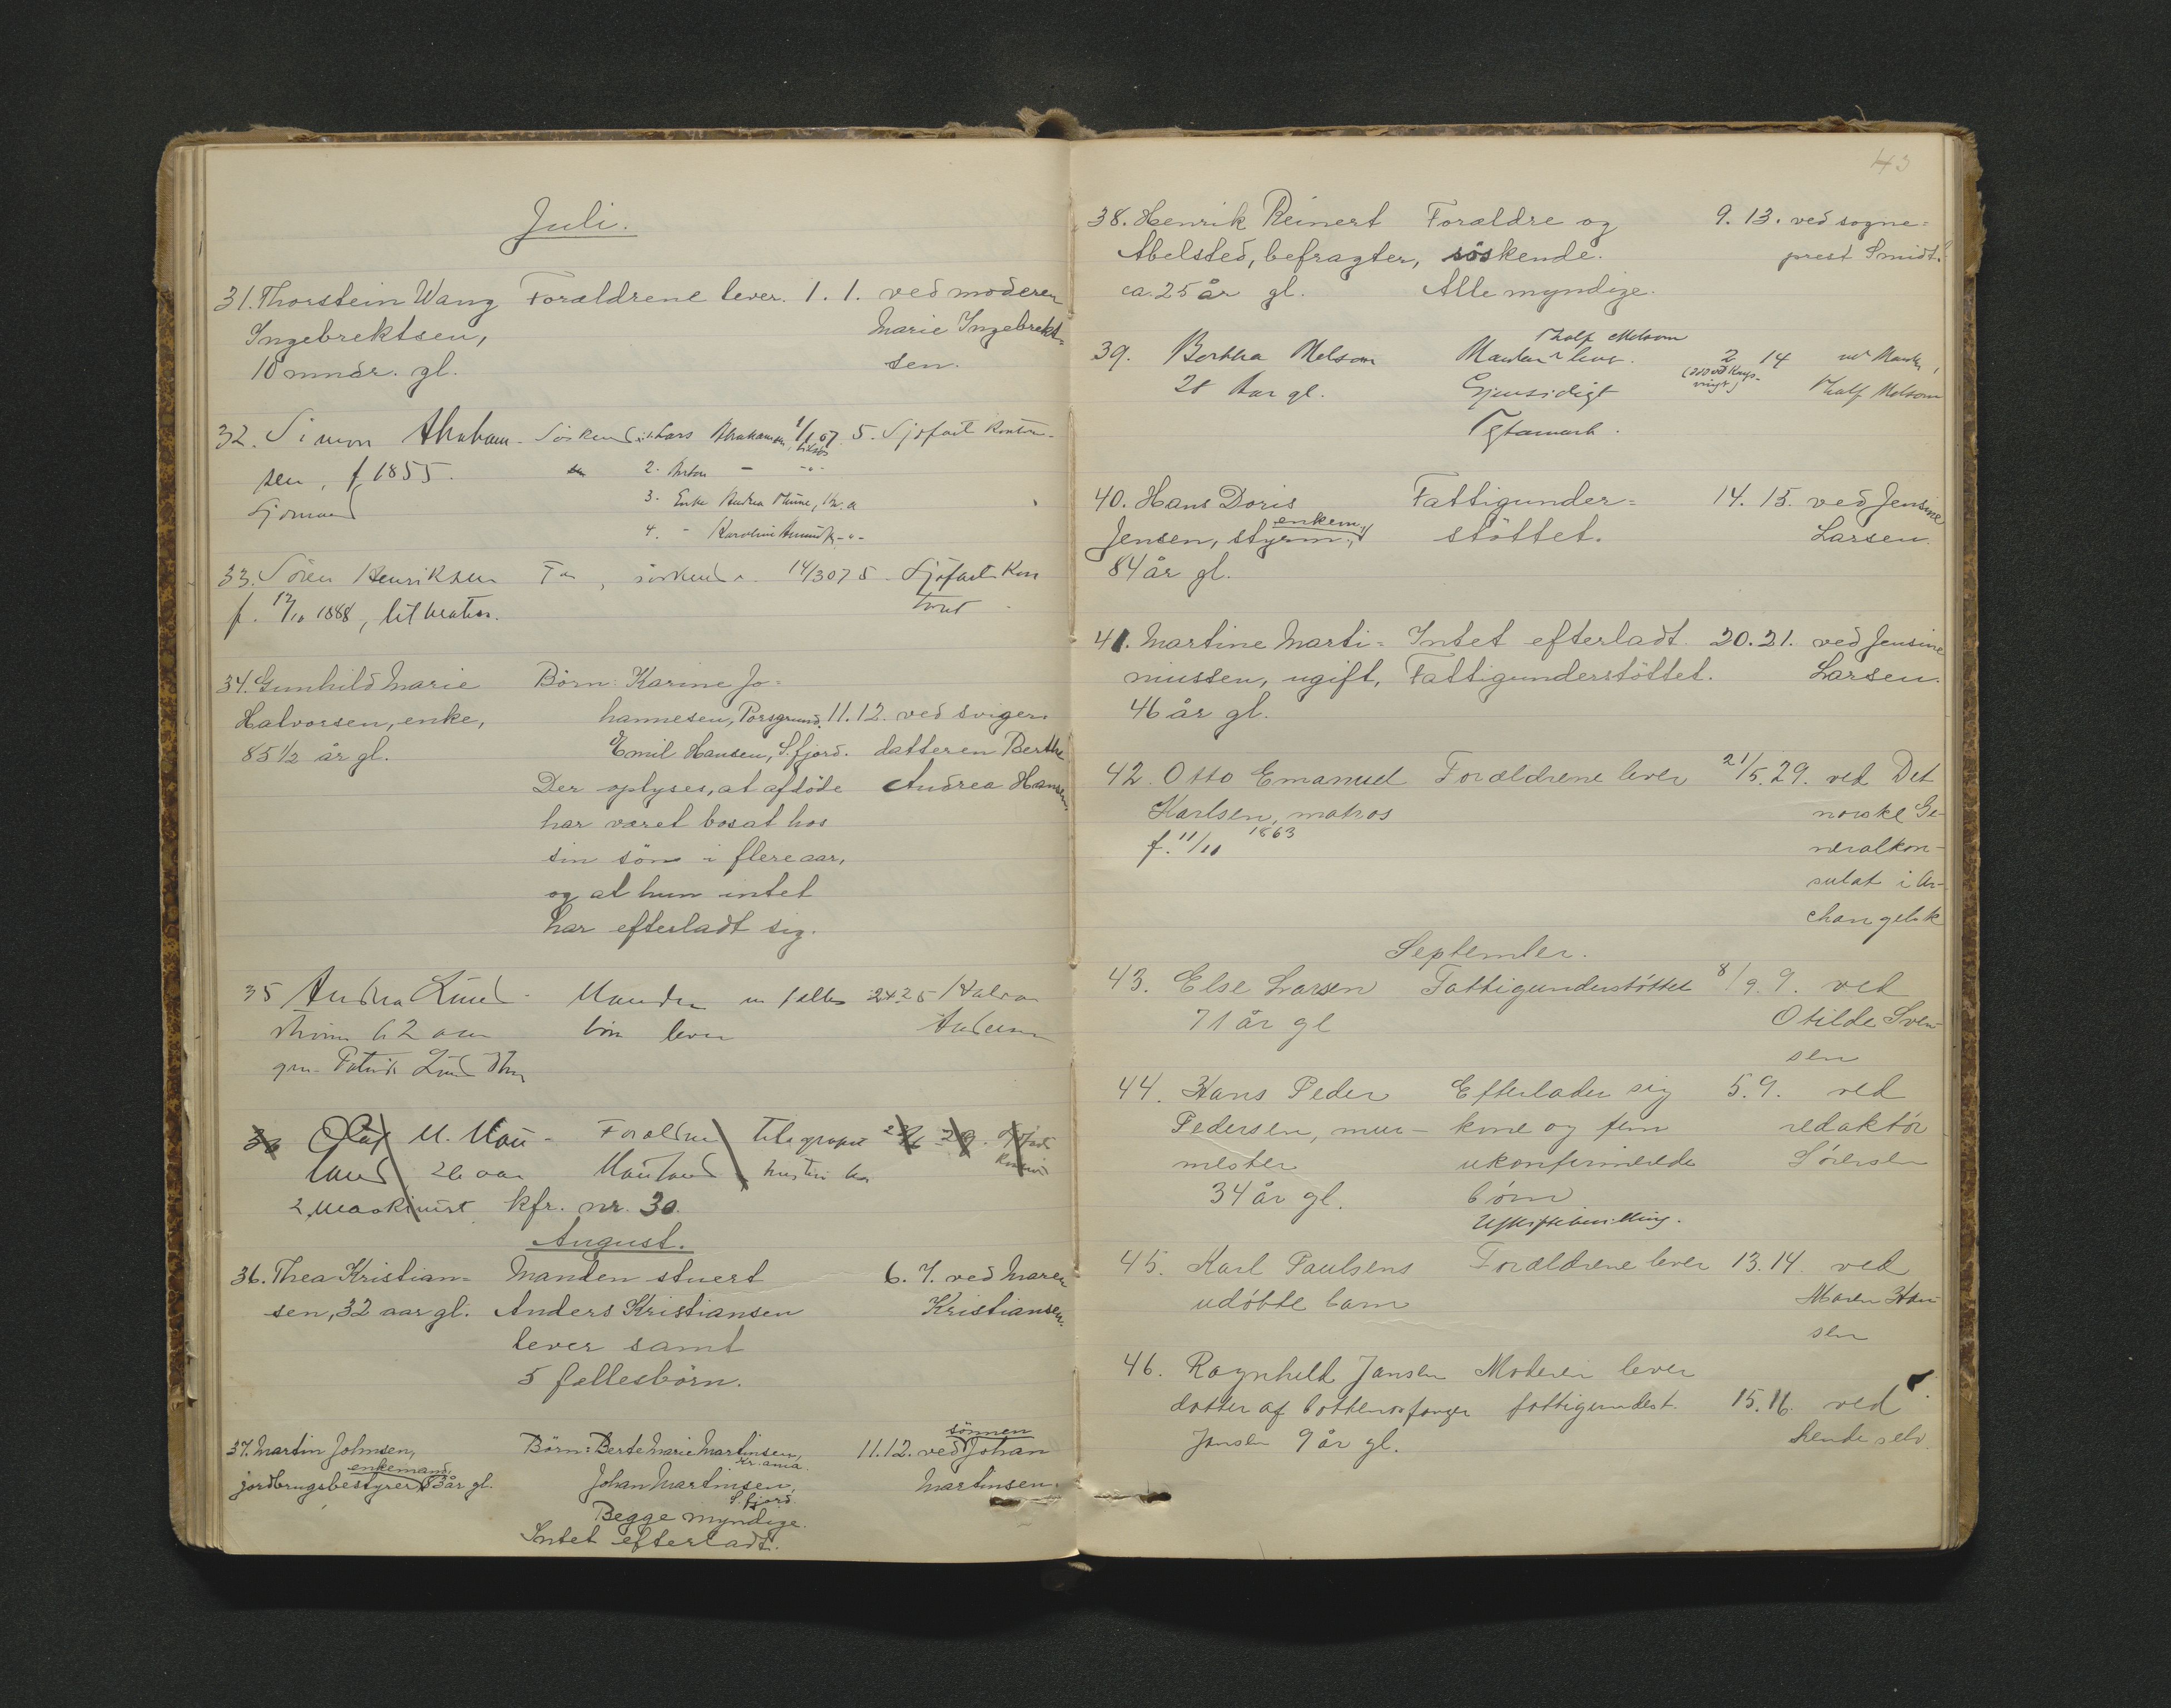 Juli.
31. Thorstein Wang Forældrene lever. 1. 1. ved moderen
Ingebrektsen, Marie Ingebrekt=
10 mnár. gl. sen.
32. Simon Abraham- Søskend: Lars Abrahamsen, 1/1 07 5. Sjøfart Konto-
sen, f. 1855. 2. Anton - -"-
Sjømand 3. Enke Andrea
4. - Karoline -"-
33. Sören Henriksen Far, søskende. 14/3 07 5. Sjøfart Kon
f. 12/10 1888, letmatros. toret
34. Gunhild Marie Börn: Karine Jo=
Halvorsen, enke, hannesen, Porsgrund. 11. 12. ved sviger=
85 1/2 år gl. Emil Hansen, S.fjord. datteren Berthe
Der oplyses, at afdöde Andrea Hansen.
har været bosat hos
sin sön i flere aar,
og at hun intet
har efterladt sig.
35 Andrea Lund- Manden og fælles 24. 25 Halvor
strøm 62 aar børn lever Andersen
Lund
36 Olaf M. Mau- Forældre Telegrafist 29. Sjøfarts
land 26 aar Mauland
2 maskinist kfr. nr. 30.
August.
36. Thea Kristian= Manden stuert 6. 7. ved Maren
sen, 32 aar gl. Anders Kristiansen Kristiansen.
lever samt
5 fællesbörn.
sönnen
37. Martin Johnsen, Börn: Berte Marie Martinsen, 11. 12. ved Johan
enkemand, Kr.ania.
jordbrugsbestyrer 83 år gl. Johan Martinsen, Martinsen.
S.fjord.
Begge myndige.
Intet efterladt.
43
38. Henrik Reinert Forældre og 9. 13. ved sogne=
Abelsted, befragter, söskende. prest Smidt.
ca. 25 år gl. Alle myndige.
Thalf Melsom
39. Bertha Melsom Manden lever. 2 14 ved Manden,
28 Aar gl. Gjensidigt Thalf Melsom
Testament.
40. Hans Doris Fattigunder= 14. 15. ved Jensine
enkem.,
Jensen, styrm., stöttet. Larsen.
84 år gl.
41. Martine Marti= Intet efterladt. 20. 21. ved Jensine
nussen, ugift, Fattigunderstöttet. Larsen.
46 år gl.
42. Otto Emanuel Forældrene lever 21/5. 29. ved Det
Karlsen, matros norske Ge-
f. 11/10 1863 neralkon-
sulat i Ar-
changelsk
September.
43. Else Larsen Fattigunderstöttet 8/9. 9. ved
71 år gl Otilde Sven-
sen
44. Hans Peder Efterlader sig 5. 9. ved
Pedersen, mur- kone og fem redaktör
mester ukonfirmerede Sörensen
34 år gl. börn
Uskiftebevilling.
45. Karl Paulsens Forældrene lever 13. 14. ved
udöbte barn Maren Han-
sen
46. Ragnhild Jansen Moderen lever
datter af bottlenosfanger fattigunderst. 15. 16. ved
Jansen 9 år gl. hende selv.